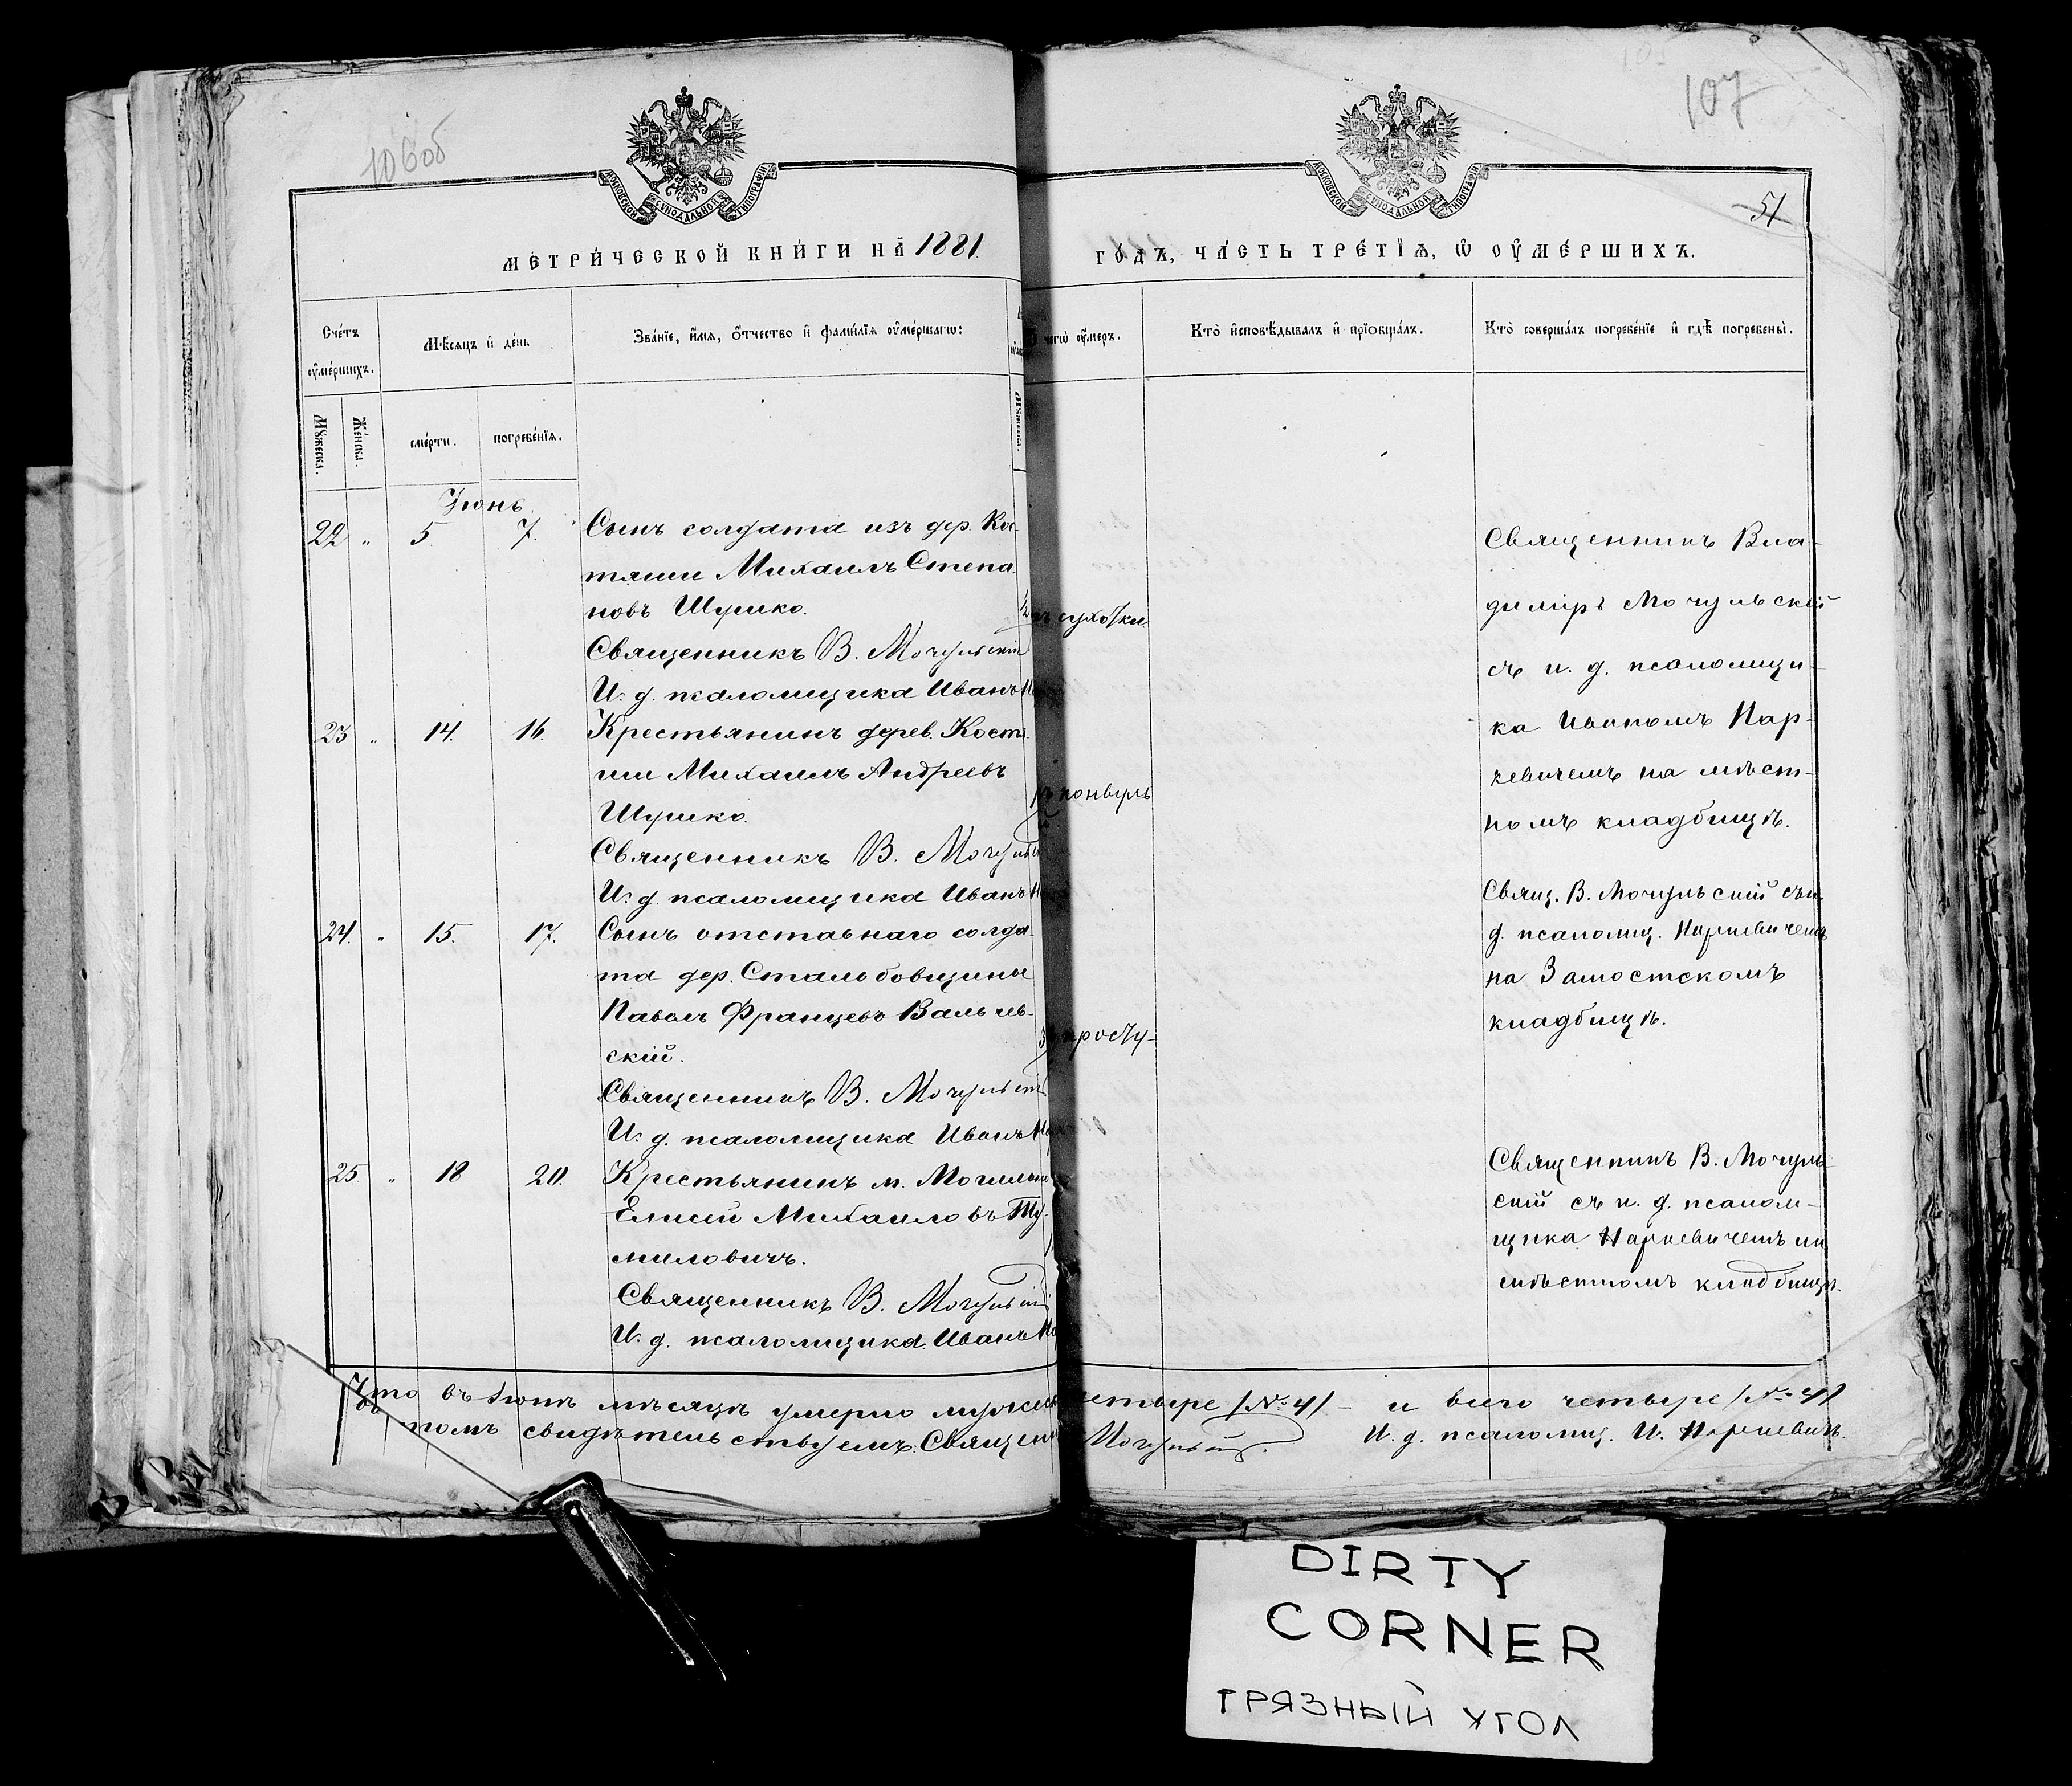 106об
107
51
МОСКОВСКОЙ СѴНОДАЛЬНОЙ ТИПОГРАФІИ
МОСКОВСКОЙ СѴНОДАЛЬНОЙ ТИПОГРАФІИ
МЕТРИ́ЧЕСКОЙ КНИ́ГИ НА 1881
ГО́ДЪ, ЧА́СТЬ ТРЕ́ТІѦ, Ѽ ОУ҆МЕ́РШИХЪ.
Сче́тъ оу҆ме́ршихъ.
Мѣ́сѧцъ и҆ де́нь
Зва́нїе, и҆́мѧ, ѻ҆́тчество и҆ фами́лїѧ оу҆ме́ршагѡ:
чегѡ̀ оу҆́меръ.
Кто̀ и҆сповѣ́дывалъ и҆ прїѡбща́лъ.
Кто̀ соверша́лъ погребе́нїе и҆ гдѣ̀ погребены̀.
Мꙋ́жеска.
Же́нска.
сме́рти.
погребе́нїѧ.
Мꙋ́жеска.
Іюнь
22 " 5. 7. Сынъ солдата изъ дер. Кос-
тяши Михаилъ Степа-
новъ Шушко.
Священникъ В. Мочульскій
И. д. псаломщика Иванъ
сухотки
Священникъ Вла-
диміръ Мочульскій
съ и. д. псаломщи-
ка Иваномъ Нар-
кевичемъ на мѣст-
номъ кладбищѣ.
23 " 14. 16. Крестьянинъ дерев. Костя-
ши Михаилъ Андреевъ
Шушко.
Священникъ В. Мочульскій
И. д. псаломщика Иванъ
конвуль
24. " 15. 17. Сынъ отставнаго солда-
та дер. Стальбовщины
Павелъ Францевъ Вальчев-
скій.
Священникъ В. Мочульскій
И. д. псаломщика Иванъ
просту-
Свящ. В. Мочульскій съ и.
д. псаломщ. Наркевичемъ
на Замостскомъ
кладбищѣ.
25. " 18 20. Крестьянинъ м. Могильно
Елисей Михаиловъ Ту-
миловичъ.
Священникъ В. Мочульскій
И. д. псаломщика Иванъ
Священникъ В. Мочуль-
скій съ и. д. псалом-
щика Наркевичемъ на
мѣстномъ кладбищѣ.
Что въ Іюнѣ мѣсяцѣ умерло мужеск четыре /№ 4/ – и всего четыре /№ 4/
томъ свидѣтельствуемъ: Священ Мочульскій. И. д. псаломщ. И. Наркевичъ.
DIRTY
CORNER
ГРЯЗНЫЙ УГОЛ